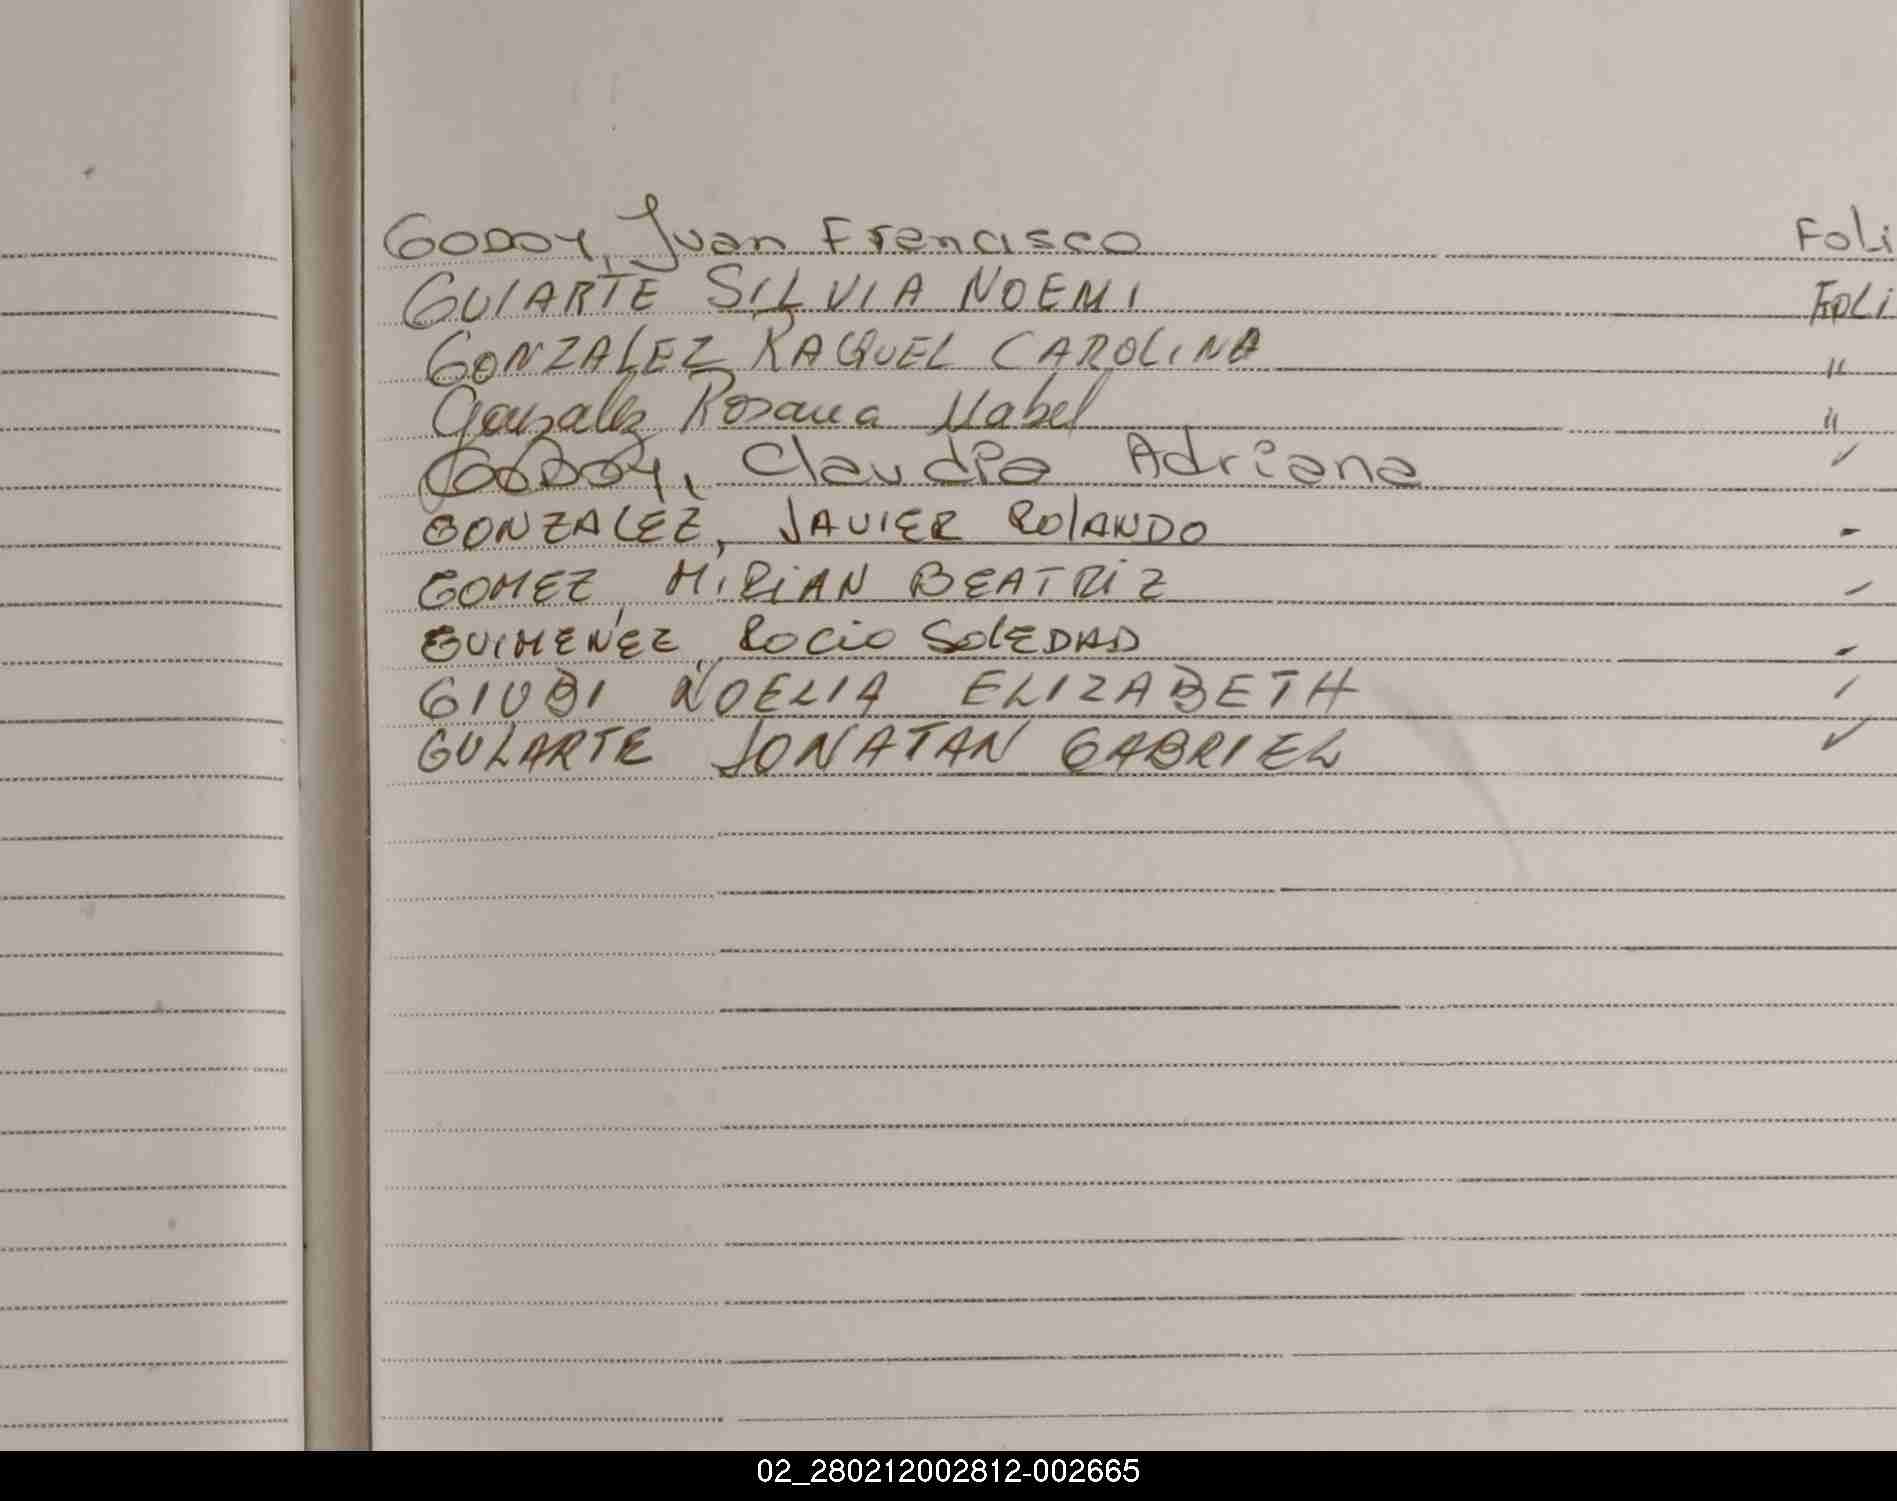 GODOY, Juan Francisco Foli
GULARTE SILVIA NOEMI FOLi
GONZALEZ RAQUEL CAROLINA "
Gonzalez Rosana Mabel "
GODOY, Claudia Adriana ✓
GONZALEZ, JAVIER ROLANDO -
GOMEZ, MIRIAN BEATRIZ -
GUIMENEZ, ROCIO SOLEDAD -
GIUBI NOELIA ELIZABETH -
GULARTE JONATAN GABRIEL ✓
02_280212002812-002665